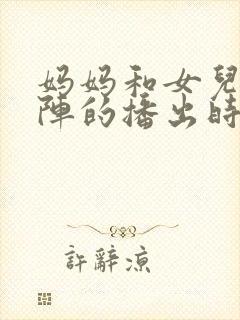 妈妈和女兒
陣的播出時
許辭涼